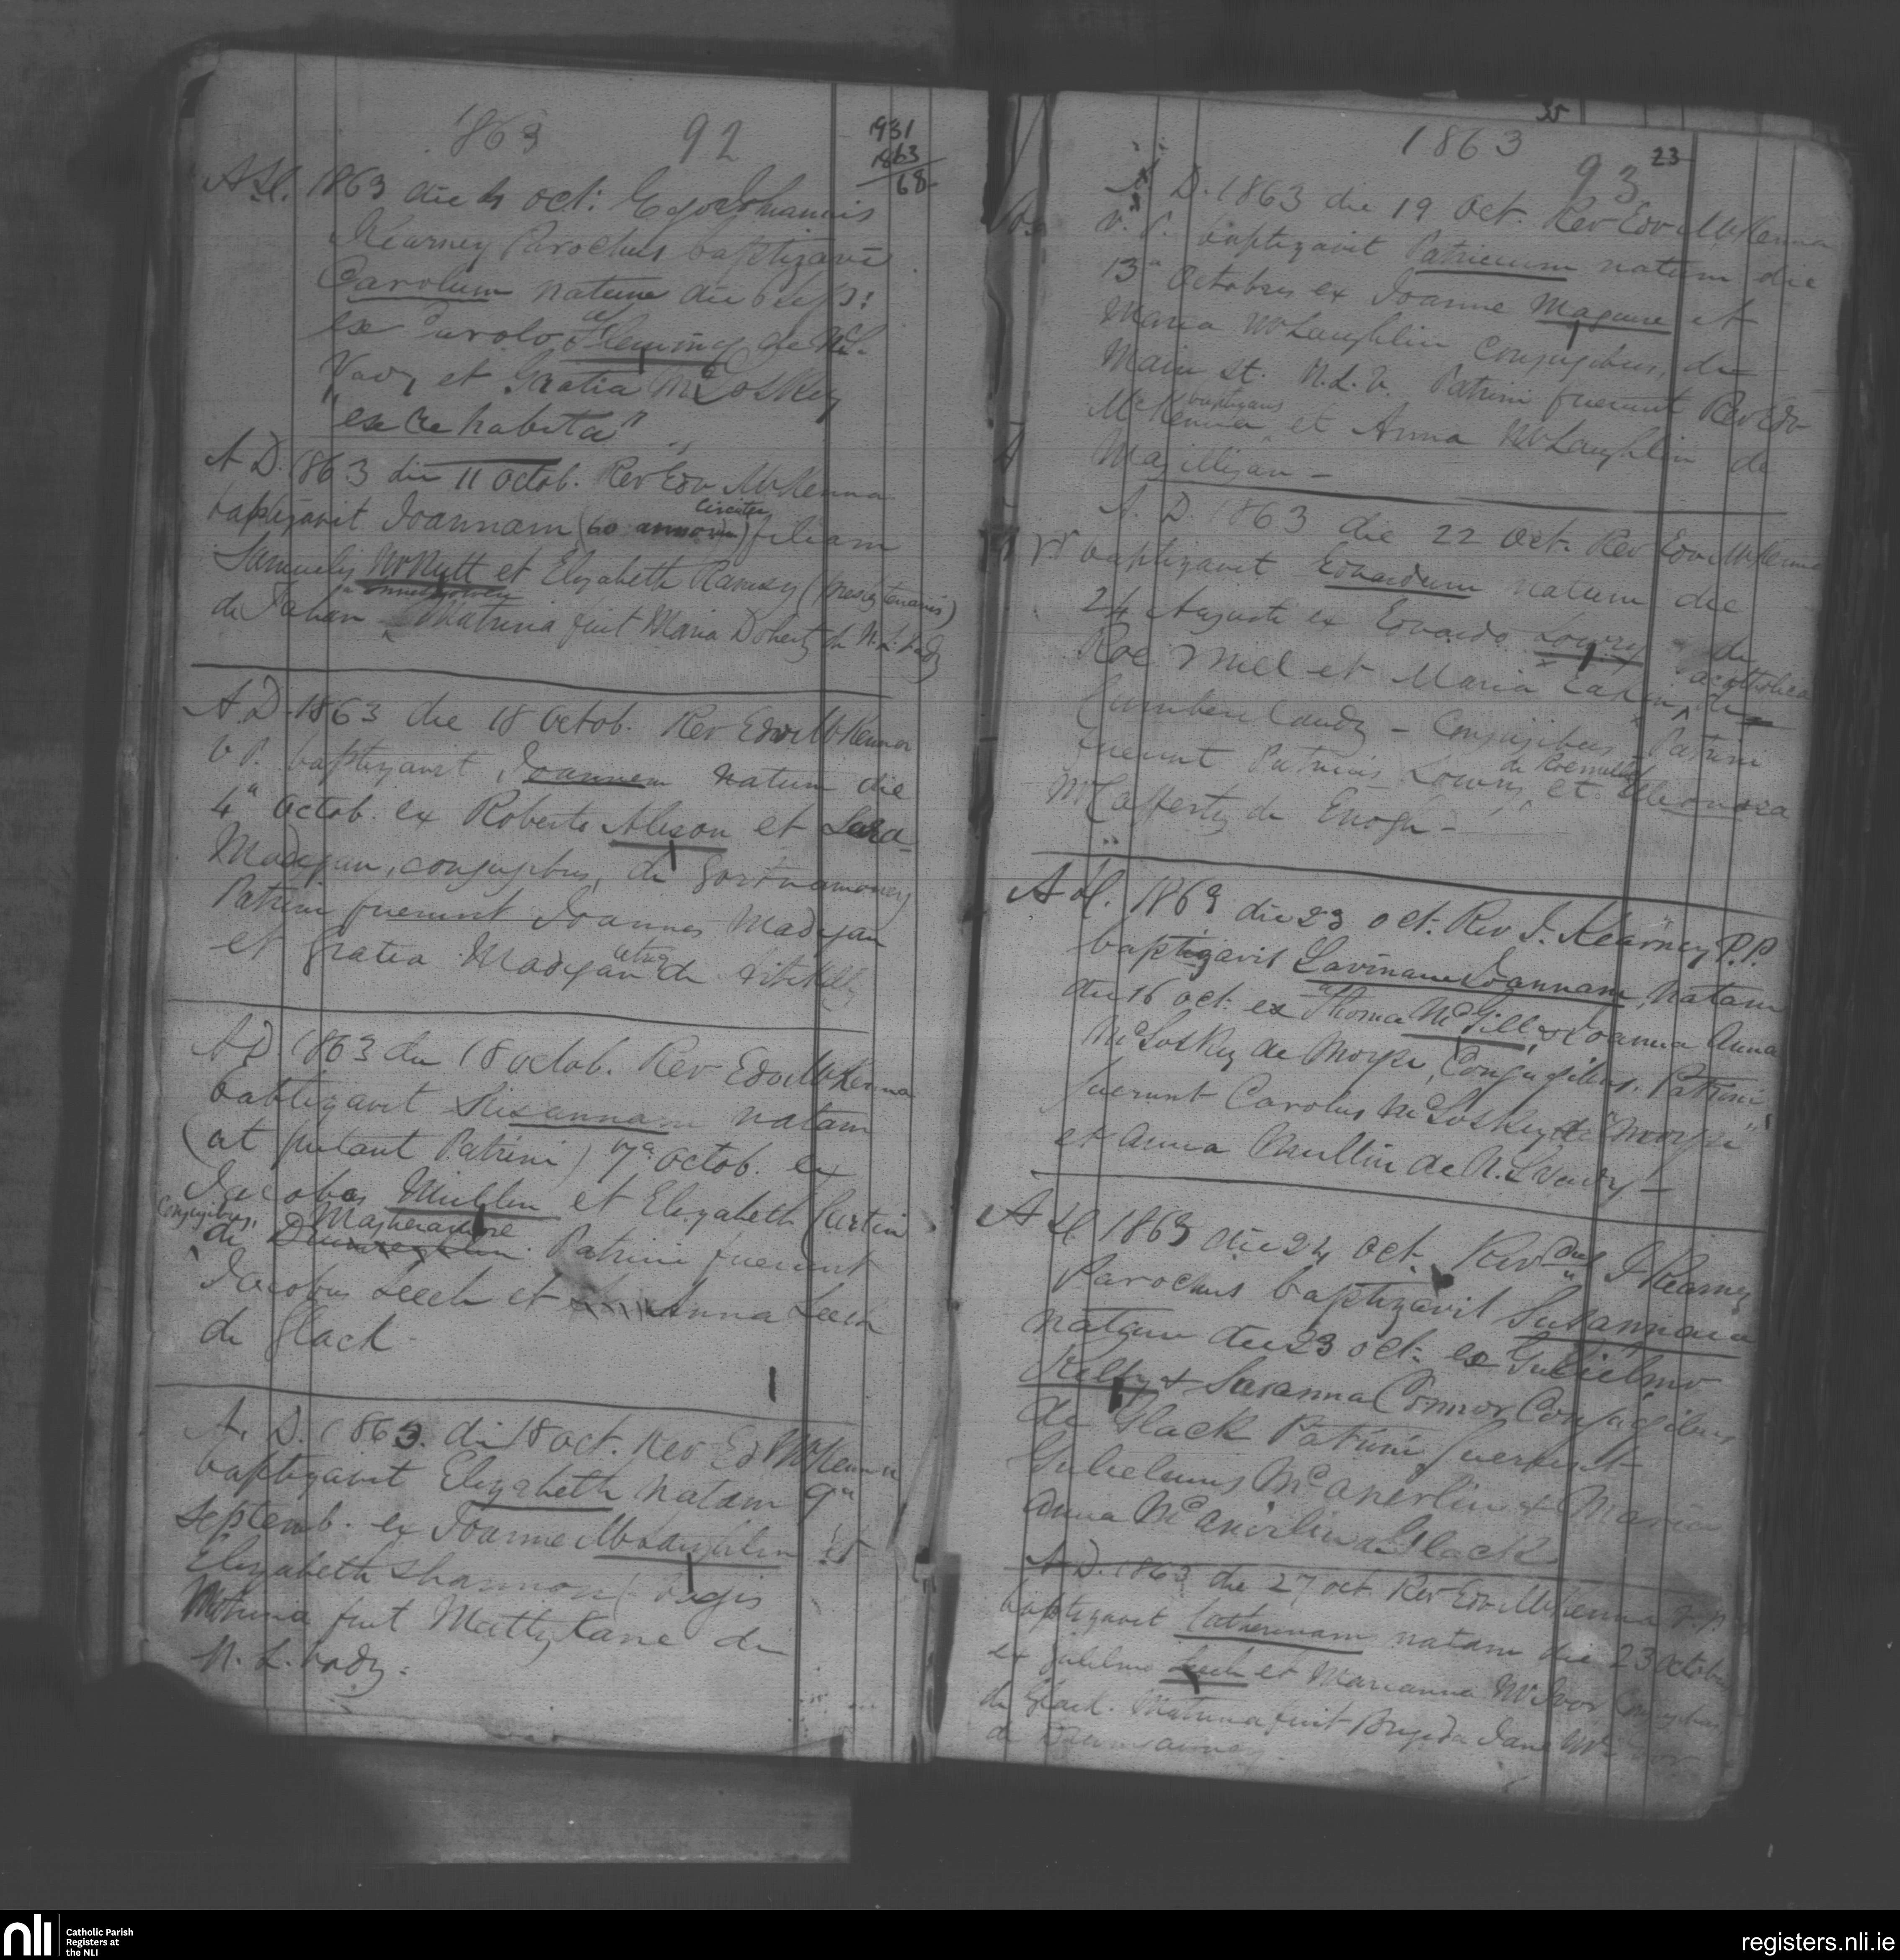 1863 92
1931
1863
68
A.D. 1863 die 4 oct: Ego Johannis
Kearney Parochus baptizavi
Carolum natum die 6 Sep:
ex Carolo Fleming de N.L.
Vady et Gratia McCloskey
"ex Cre habita"
A.D. 1863 die 11 Octob. Rev Edv McKenna
baptizavit Joannam (60 annorum circiter) filiam
Samuelis McNutt et Elizabeth Ramsey (Presbyterianis)
de Fahan Matrina fuit Maria Doherty de N. L. Vady
A.D. 1863 die 18 Octob. Rev Edv McKenna
V P. baptizavit Joannem natum die
4a Octob. ex Roberto Alison et Sara
Madigan, conjugibus, de Gortnamoney
Patrini fuerunt Joannes Madigan
et Gratia Madigan utrq de
A.D. 1863 die 18 Octob. Rev Edv McKenna
baptizavit Susannam natam
(at putant Patrini) 7a Octob. ex
Jacobo Mullen et Elizabeth Curtin
Conjugibus,
de Patrini fuerunt
Jacobus Leech et Anna Leech
de Glack
A. D. 1863. die 18 oct. Rev Ed McKenna
baptizavit Elizabeth natam 9a
Septemb. ex Joanne McLaughlin et
Elizabeth Shannon
Matrina fuit Matty Kane de
N. L. Vady.
35
1863
93 23
A. D. 1863 die 19 Oct. Rev Edv McKenna
V. P. baptizavit Patricium natum die
13a Octobris ex Joanne Maguire et
Maria McLaughlin Conjugibus, de
Main St. N.L.V. Patrini fuerunt Rev Edv
McKenna baptizans et Anna McLaughlin de
Magilligan -
A. D. 1863 die 22 Oct. Rev Edv McKenna
baptizavit Edvardum natum die
24 Augusti ex Edvardo Lowry de
Roe Mill et Maria acattholica de
Conjugibus Patrini
fuerunt Patricius Lowry de Roemill et Eleonora
McCafferty de Enogh -
A.D. 1863 die 23 oct. Rev J. Kearney P.P.
baptizavit Lavinam Joannam, natam
die 16 oct. ex Thoma McGill & Joanna Anna
McCloskey de Moyse, Conjugibus. Patrini
fuerunt Carolus McCloskey de "Moyse"
et Anna Mullin de N. L Vady -
A.D. 1863 die 24 Oct. Revdus J Kearney
Parochus baptizavit Susannam
natam die 23 oct. ex Gulielmo
Kelly & Susanna Connor Conjugibus
de Glack Patrini fuerunt
Gulielmus McAnerlin & Maria
Anna McAnerlin de Glack
A.D. 1863 die 27 oct. Rev Edv McKenna V.P.
baptizavit Catherinam natam die 23 Octobris
ex Gulielmo Leech et Marianna McIvor Conjugibus
de Glack. Matrina fuit Brigida Jane
de
nli Catholic Parish
Registers at
the NLI
registers.nli.ie